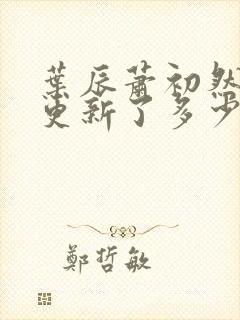 葉辰蕭初然
更新了多少
鄭哲敏